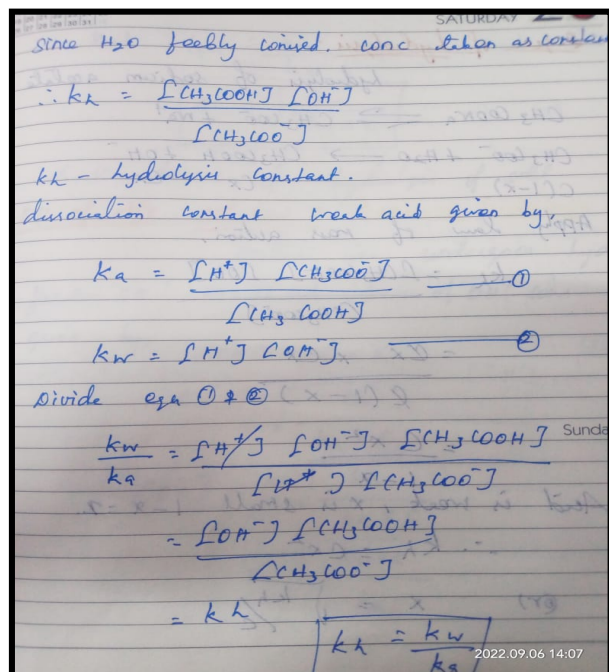 SATURDAY
since H2O feebly ionised. conc taken as constant
∴ kh = [CH3COOH] [OH⁻]
[CH3COO⁻]
kh - hydrolysis constant.
dissociation constant weak acid given by,
ka = [H⁺] [CH3COO⁻] ——— ①
[CH3COOH]
kw = [H⁺] [OH⁻] ——— ②
Divide eqn ① & ②
kw = [H⁺] [OH⁻] [CH3COOH] Sunda
ka [H⁺] [CH3COO⁻]
= [OH⁻] [CH3COOH]
[CH3COO⁻]
= kh
kh = kw
ka
2022.09.06 14:07